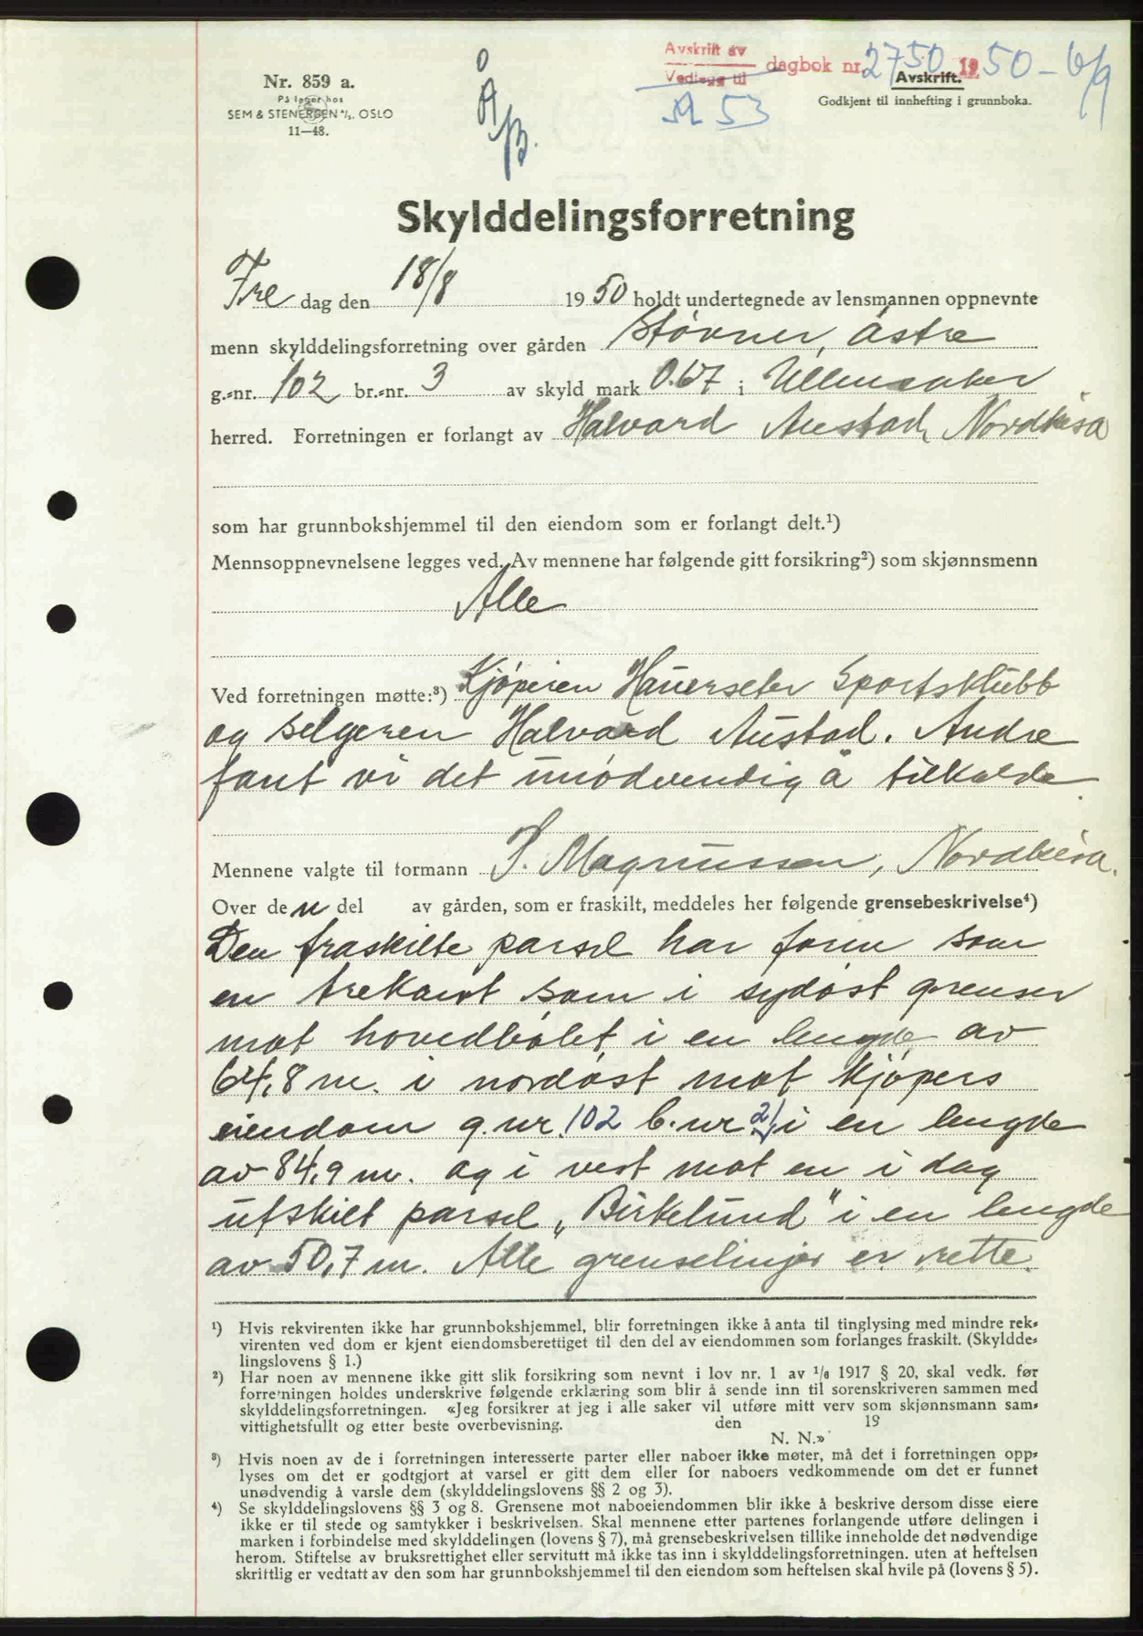 Avskrift av
Vedlegg til
dagbok nr. 2750 1950 - 6/9
Avskrift.
Godkjent til innhefting i grunnboka.
Nr. 859 a.
På lager hos
SEM & STENERSEN A/S. OSLO
11—48.
Skylddelingsforretning
Fre dag den 18/8 1950 holdt undertegnede av lensmannen oppnevnte
menn skylddelingsforretning over gården Støvner, østre
g.-nr. 102 br.-nr. 3 av skyld mark 0.67 i Ullensaker
herred. Forretningen er forlangt av Halvard Austad, Nordkisa
som har grunnbokshjemmel til den eiendom som er forlangt delt.¹)
Mennsoppnevnelsene legges ved. Av mennene har følgende gitt forsikring²) som skjønnsmenn
Alle
Ved forretningen møtte:³) Kjøperen Hauerseter Sportsklubb
og selgeren Halvard Austad. Andre
fant vi det unødvendig å tilkalde.
Mennene valgte til formann P. Magnussen, Nordkisa.
Over den del av gården, som er fraskilt, meddeles her følgende grensebeskrivelse⁴)
Den fraskilte parsel har form som
en trekant som i sydøst grenser
mot hovedbølet i en lengde av
64,8 m. i nordøst mot kjøpers
eiendom g.nr. 102 b.nr 21 i en lengde
av 84,9 m. og i vest mot en i dag
utskilt parsel „Birkelund" i en lengde
av 50,7 m. Alle grenselinjer er rette.
¹) Hvis rekvirenten ikke har grunnbokshjemmel, blir forretningen ikke å anta til tinglysing med mindre rek-
virenten ved dom er kjent eiendomsberettiget til den del av eiendommen som forlanges fraskilt. (Skyldde-
lingslovens § 1.)
²) Har noen av mennene ikke gitt slik forsikring som nevnt i lov nr. 1 av 1/6 1917 § 20, skal vedk. før
forretningen holdes underskrive følgende erklæring som blir å sende inn til sorenskriveren sammen med
skylddelingsforretningen. «Jeg forsikrer at jeg i alle saker vil utføre mitt verv som skjønnsmann sam-
vittighetsfullt og etter beste overbevisning. den 19
N. N.»
³) Hvis noen av de i forretningen interesserte parter eller naboer ikke møter, må det i forretningen opp-
lyses om det er godtgjort at varsel er gitt dem eller for naboers vedkommende om det er funnet
unødvendig å varsle dem (skylddelingslovens §§ 2 og 3).
⁴) Se skylddelingslovens §§ 3 og 8. Grensene mot naboeiendommen blir ikke å beskrive dersom disse eiere
ikke er til stede og samtykker i beskrivelsen. Skal mennene etter partenes forlangende utføre delingen i
marken i forbindelse med skylddelingen (lovens § 7), må grensebeskrivelsen tillike inneholde det nødvendige
herom. Stiftelse av bruksrettighet eller servitutt må ikke tas inn i skylddelingsforretningen, uten at heftelsen
skriftlig er vedtatt av den som har grunnbokshjemmel til den eiendom som heftelsen skal hvile på (lovens § 5).